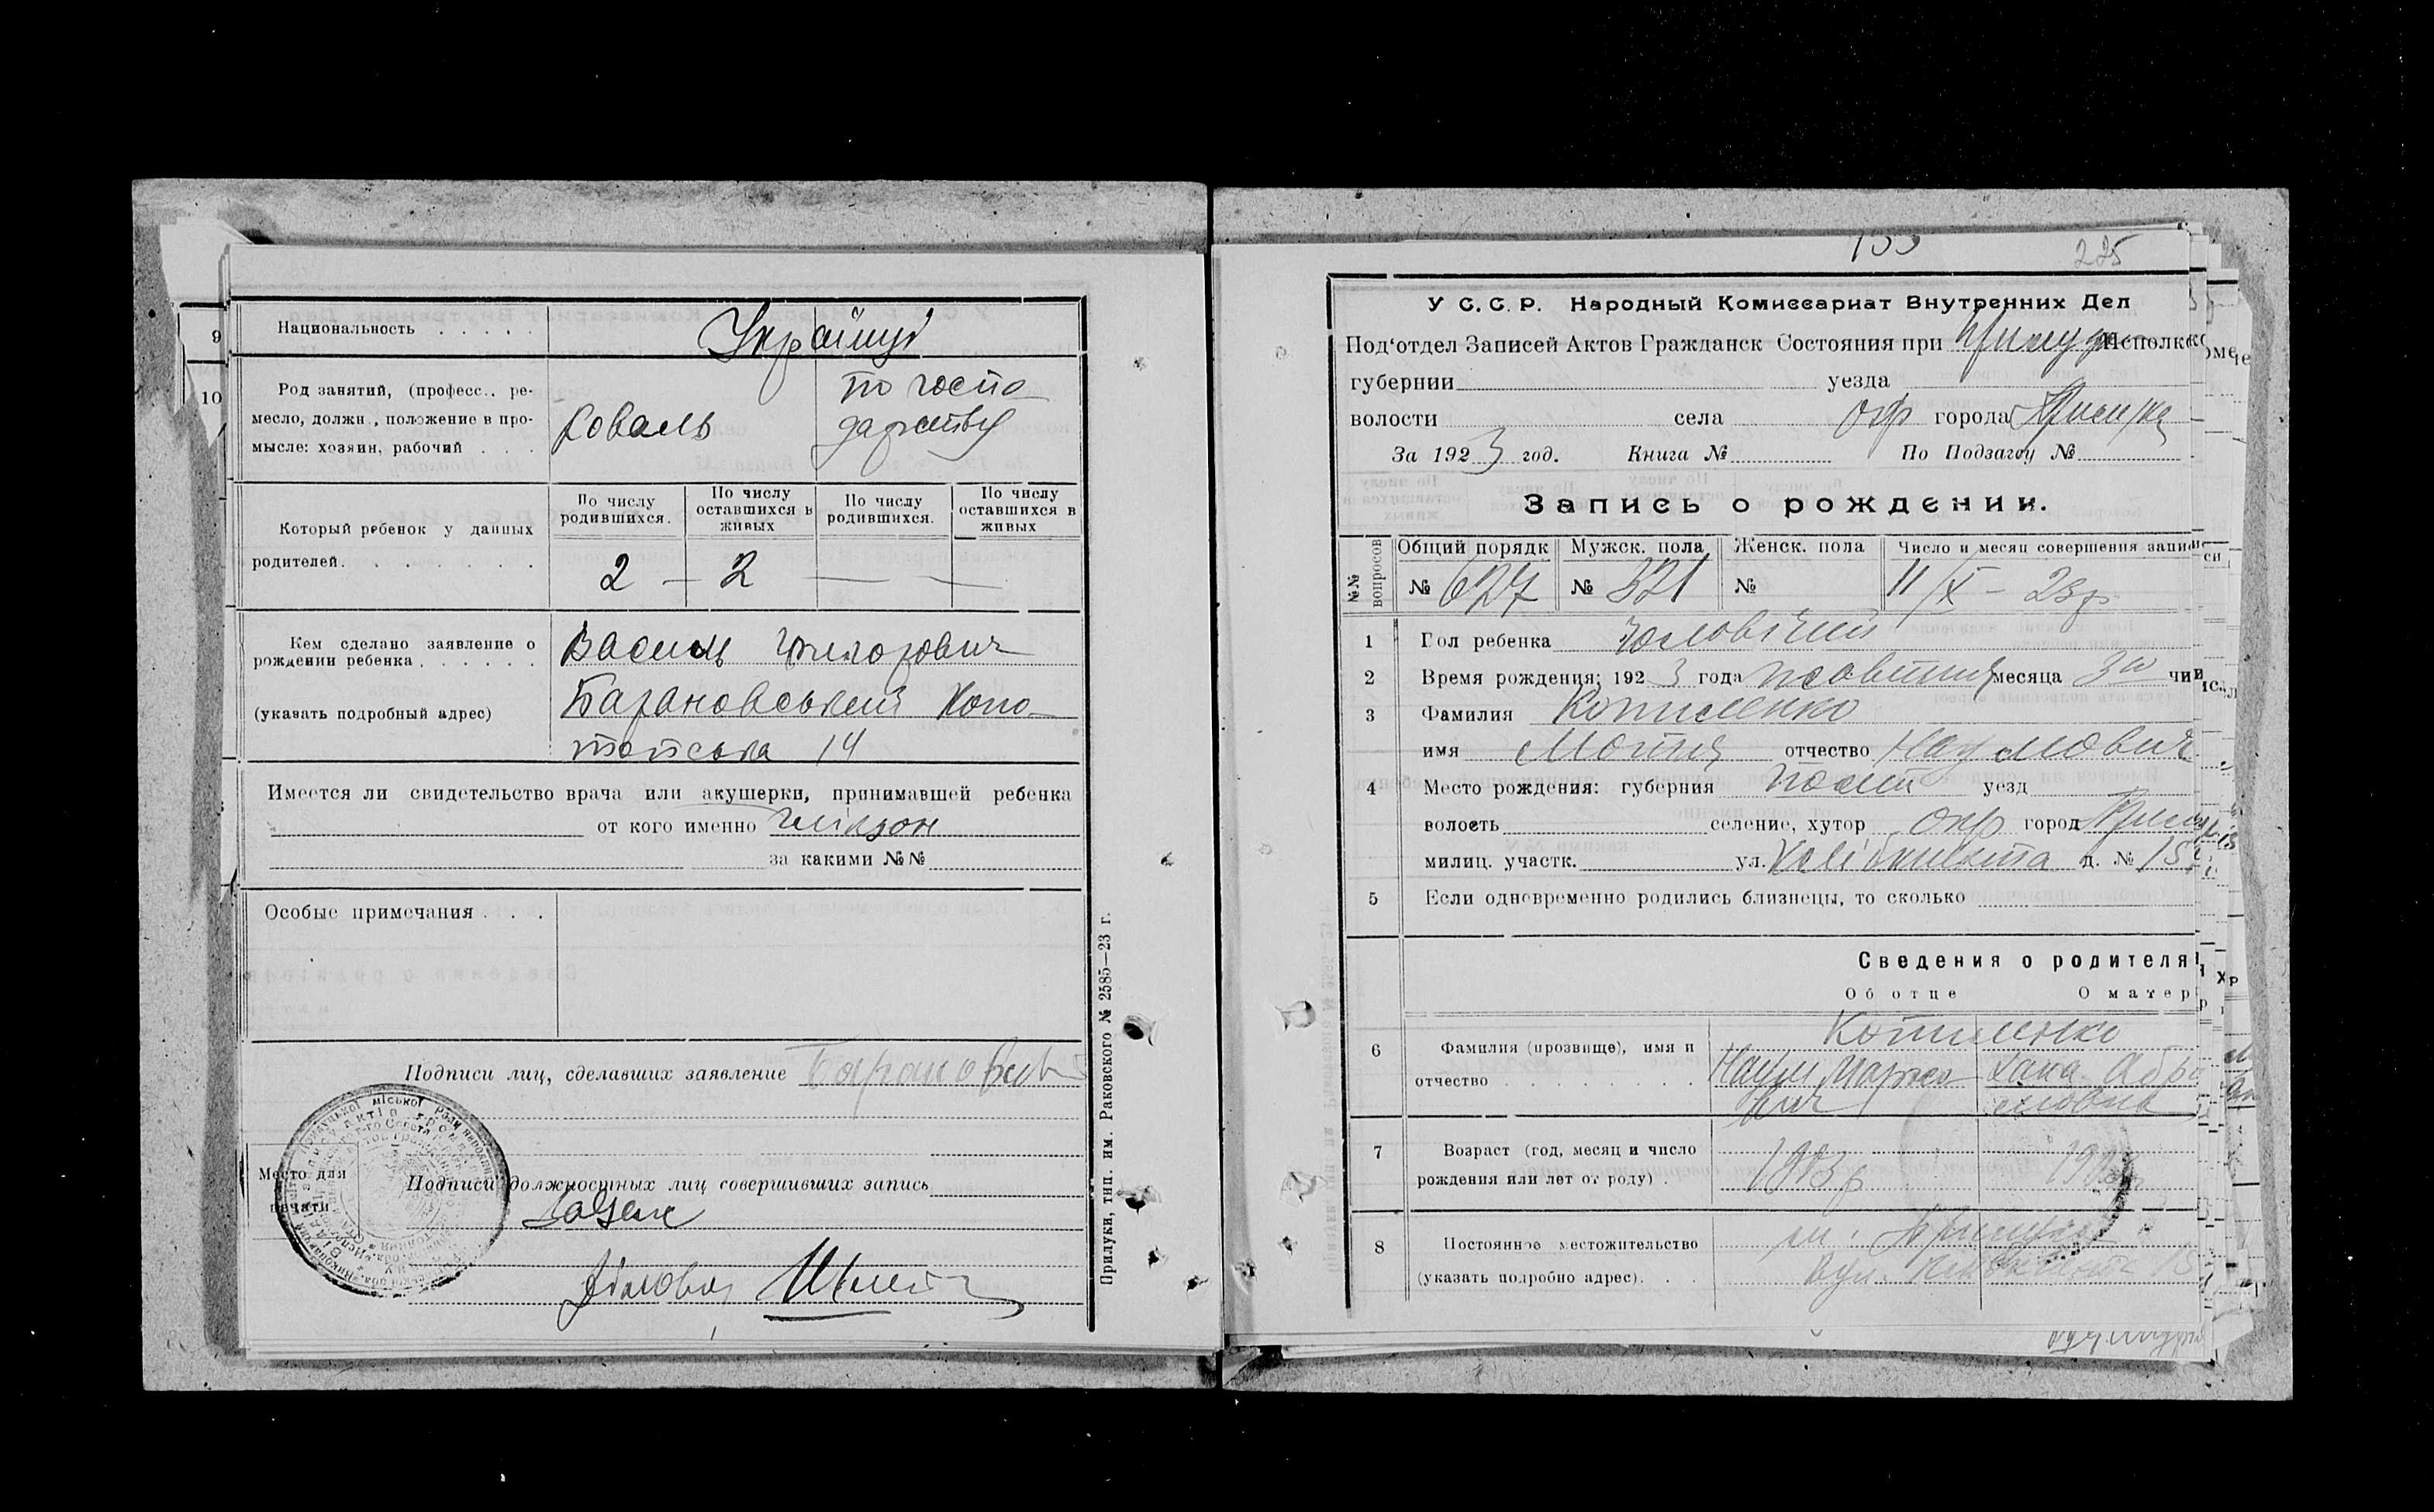 9
Национальность . . . . .
Українці
10
Род занятий, (професс., ре-
месло, должн., положение в про-
мысле: хозяин, рабочий . . .
Коваль
по госпо
дарству
Который ребенок у данных
родителей. . . . . . .
По числу родившихся.
По числу оставшихся в живых
По числу родившихся.
По числу оставшихся в живых
2 — 2 — —
Кем сделано заявление о
рождении ребенка . . . . .
(указать подробный адрес)
Василь Григорович
Барановський Коно-
топська 14
Имеется ли свидетельство врача или акушерки, принимавшей ребенка
от кого именно
за какими №№
Особые примечания . . .
Подписи лиц, сделавших заявление
Место для
печати
Подписи должностных лиц совершивших запись
Прилуки, тип. им. Раковского № 2585—23 г.
225
У С. С. Р. Народный Комиссариат Внутренних Дел
Под'отдел Записей Актов Гражданск Состояния при Исполко
губернии уезда
волости села окр города Прилуки
За 1923 год. Книга № По Подзагсу №
Запись о рождении.
№№ вопросов
Общий порядк
Мужск. пола
Женск. пола
Число и месяц совершения записи
№ 627 № 321 № 11/X – 23 р
1 Пол ребенка чоловічий
2 Время рождения: 1923 года жовтня месяца 3го
3 Фамилия Копиленко
имя Мотия отчество Наумович
4 Место рождения: губерния Полт уезд
волость селение, хутор окр город
милиц. участк. ул. Лібкнехта д. № 15
5 Если одновременно родились близнецы, то сколько
Сведения о родителя
Об отце О матер
6 Фамилия (прозвище), имя и
отчество . . . . . . . .
Копиленко
Наум Марко-
вич
Хана Абра
мовна
7 Возраст (год, месяц и число
рождения или лет от роду) .
8 Постоянное местожительство
(указать подробно адрес). . .
м. Прилуки
вул. Лібкнехта 15